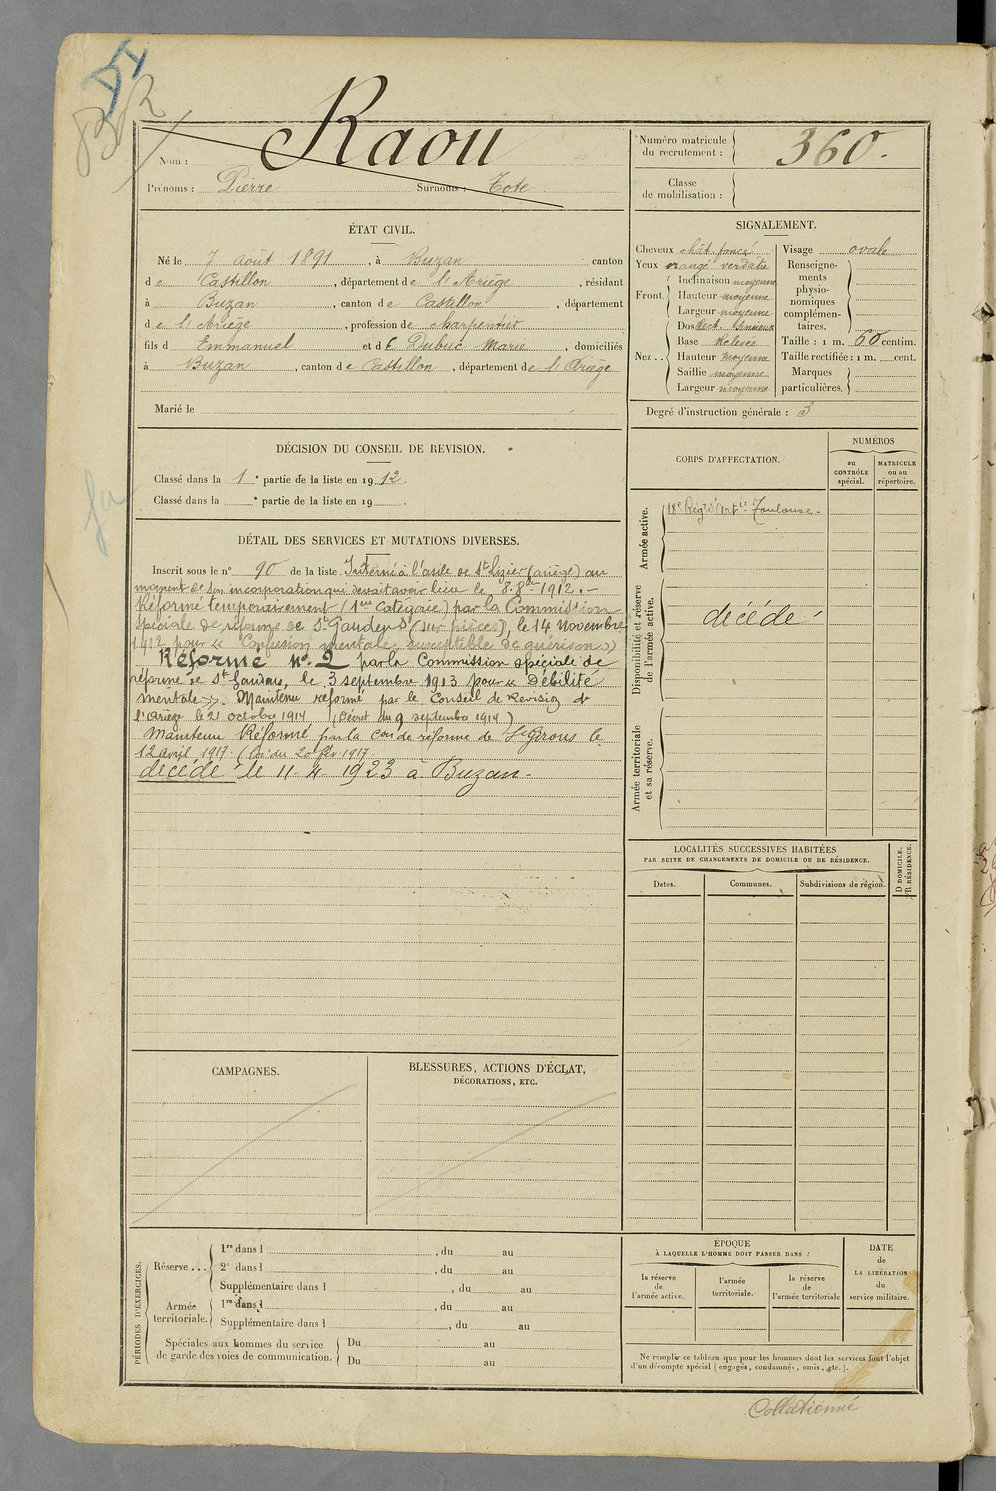 DI
Nom : Raou
Prénoms : Pierre Surnoms : Tote
Numéro matricule
du recrutement : 360.
Classe
de mobilisation :
ÉTAT CIVIL.
Né le 7 août 1891, à Buzan canton
de Castillon, département de l'Ariège, résidant
à Buzan, canton de Castillon, département
de l'Ariège, profession de charpentier
fils d Emmanuel et de Dubuc Marie, domiciliés
à Buzan, canton de Castillon, département de l'Ariège
Marié le
SIGNALEMENT.
Cheveux chât. foncé
Yeux orangé verdâtre
Front. Inclinaison moyenne
Hauteur moyenne
Largeur moyenne
Nez... Dos Rect. Sinueux
Base Relevée
Hauteur moyenne
Saillie moyenne
Largeur moyenne
Visage ovale
Renseigne-
ments
physio-
nomiques
complémen-
taires.
Taille : 1 m. 60 centim.
Taille rectifiée : 1 m. cent.
Marques
particulières.
Degré d'instruction générale : 3
DÉCISION DU CONSEIL DE REVISION.
Classé dans la 1e partie de la liste en 1912.
Classé dans la e partie de la liste en 19 .
DÉTAIL DES SERVICES ET MUTATIONS DIVERSES.
Inscrit sous le n° 90 de la liste. Interné à l'asile de St Lizier (ariège) au
moment de son incorporation qui devait avoir lieu le 8 8bre 1912.-
Réformé temporairement (1ere Catégorie) par la Commission
spéciale de réforme de St Gaudens (sur pièces), le 14 Novembre
1912 pour « Confusion mentale, susceptible de guérison »
Réformé n° 2 par la Commission spéciale de
réforme de St Gaudens, le 3 septembre 1913 pour « Débilité
mentale ». Maintenu réformé par le Conseil de Revision de
l'Ariège le 21 octobre 1914 (Décret du 9 septembre 1914)
Maintenu Réformé par la Con de réforme de St Girons le
12 avril 1917 (loi du 20 fév. 1917.
décédé le 11-4-1923 à Buzan.
CORPS D'AFFECTATION.
NUMÉROS
au
CONTRÔLE
spécial.
MATRICULE
ou au
répertoire.
Armée active.
18e Régt d'Artie Toulouse.
Disponibilité et réserve
de l'armée active.
décédé
Armée territoriale
et sa réserve.
LOCALITÉS SUCCESSIVES HABITÉES
PAR SUITE DE CHANGEMENTS DE DOMICILE OU DE RÉSIDENCE.
Dates.
Communes.
Subdivisions de région.
D DOMICILE.
R RÉSIDENCE.
CAMPAGNES.
BLESSURES, ACTIONS D'ÉCLAT,
DÉCORATIONS, ETC.
PÉRIODES D'EXERCICES.
Réserve...
1re dans l , du au
2e dans l , du au
Supplémentaire dans l , du au
Armée
territoriale.
1re dans l , du au
Supplémentaire dans l , du au
Spéciales aux hommes du service
de garde des voies de communication.
Du au
Du au
ÉPOQUE
À LAQUELLE L'HOMME DOIT PASSER DANS :
la réserve
de
l'armée active.
l'armée
territoriale.
la réserve
de
l'armée territoriale
DATE
de
LA LIBÉRATION
du
service militaire.
Ne remplir ce tableau que pour les hommes dont les services font l'objet
d'un décompte spécial (engagés, condamnés, omis, etc.).
Collationné